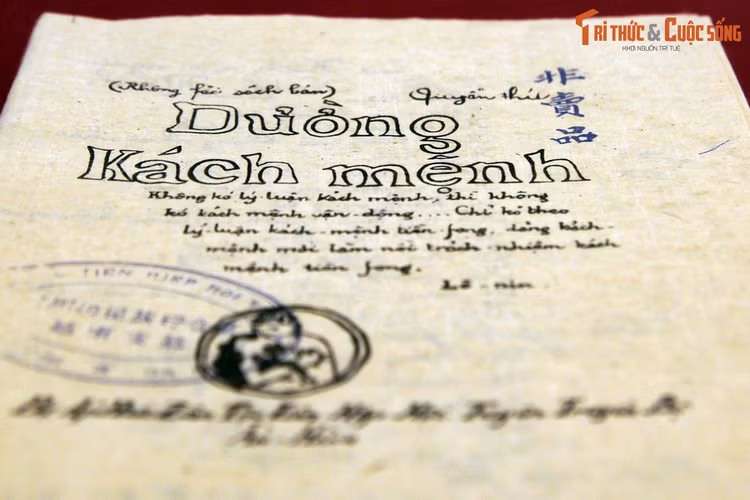 TRI THỨC & CUỘC SỐNG
KHƠI NGUỒN TRI TUỆ
(Không fải sách bán) Quyển thứ
非賣品
Dường
Kách mệnh
Không kó lý-luận kách mệnh, thì không
kó kách mệnh vận-động.... Chỉ kó theo
lý-luận kách-mệnh tiền-fong, đảng kách-
mệnh mới làm nổi trách-nhiệm kách
mệnh tiền fong.
Lê-nin.
Hội Tuyên Truyền Bộ